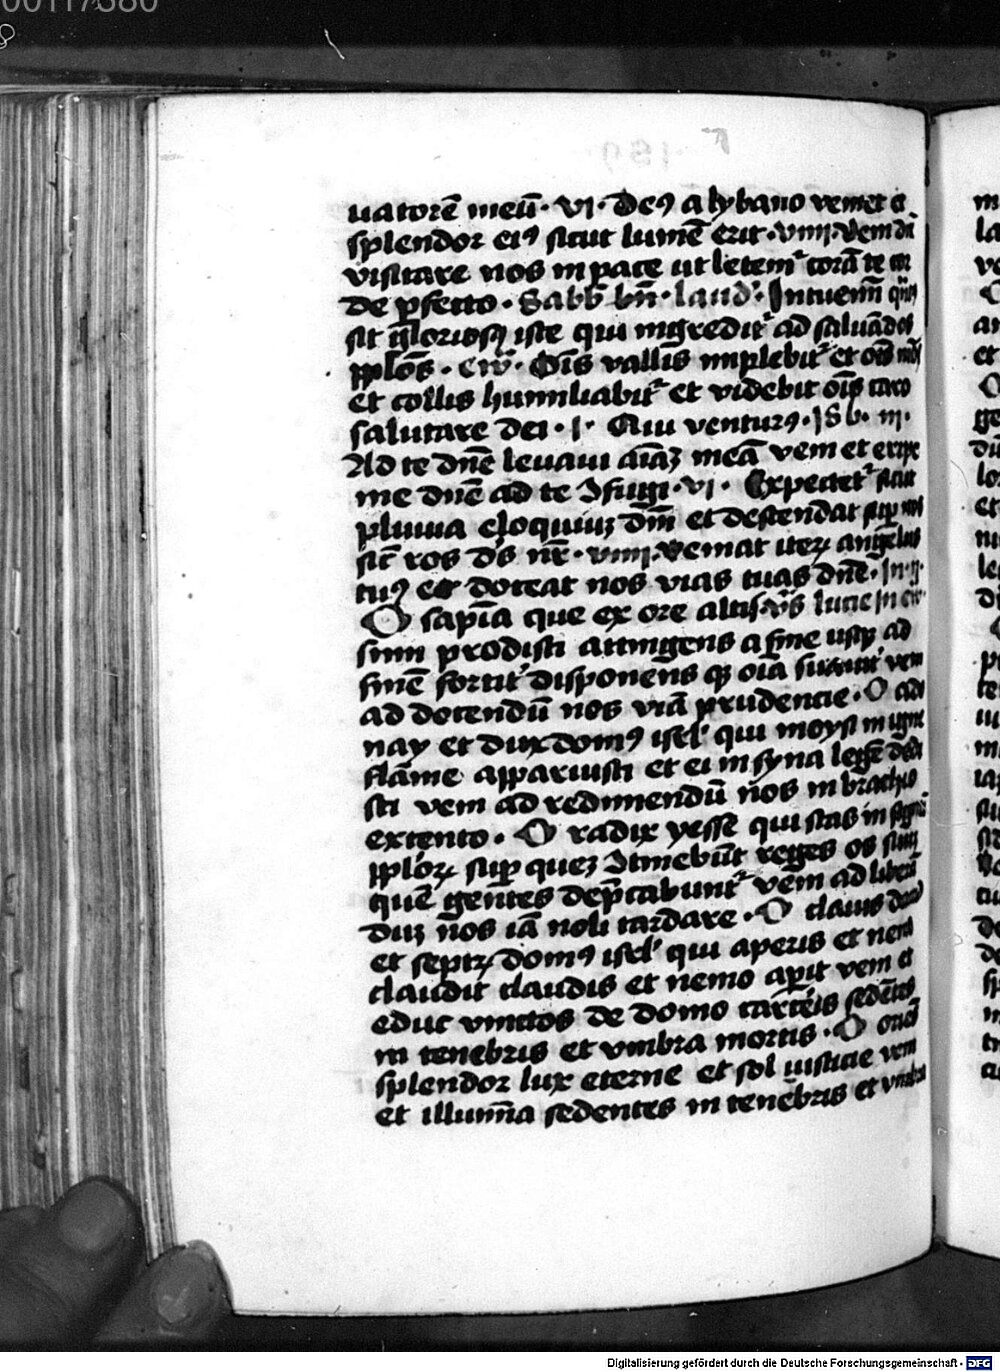 00117380
uatorē meū · vi · Deꝰ a lybano veniet et
splendor eiꝰ sicut lumē erit · viiij · Veni dn̄
visitare nos in pace ut letemᷣ corā te cor
de ꝑfecto · Sabb̄ bn̄ · laud᷒ · Intuemī qᷓꝫ
sit gl̄oriosꝰ iste qui ingreditᷣ ad saluādos
pplōs · Ois vallis implebitᷣ et oīs
et collis humiliabitᷣ et videbit oīs caro
salutare dei · Qui venturꝰ · iij ·
Ad te dn̄e leuaui aīaꝫ meā veni et eripe
me dn̄e ad te ɔfugi · vi · Expectetᷣ sicut
pluuia eloquiuꝫ dn̄i et descendat suꝑ nos
sic̄ ros d̄s nr̄ · viiij · Veniat iteꝝ angelus
tuꝰ et doceat nos vias tuas dn̄e ·
O sapīa que ex ore altis lucie
simi prodisti attingens a fine usqꝫ ad
finē fortitᷣ disponens qꝫ oīa suauitᷣ veni
ad docendū nos viā prudencie · O ado
nay et dux domꝰ isrl᷒ qui moysi in igne
flāme apparuisti et ei in syna legē dedi
sti veni ad redimendū nos in brachio
extento · O radix yesse qui stas in signū
pploꝝ suꝑ queꝫ ɔtinebūt reges os suū
quē gentes dep̄cabuntᷣ veni ad liberā
duꝫ nos iā noli tardare · O clauis dauid
et sceptꝝ domꝰ isrl᷒ qui aperis et nemo
claudit claudis et nemo aꝑit veni et
educ vinctos de domo carceris sedētes
in tenebris et vmbra mortis · O oriēs
splendor lux eterne et sol iusticie veni
et illumīna sedentes in tenebris et vmbra
Digitalisierung gefördert durch die Deutsche Forschungsgemeinschaft - DFG